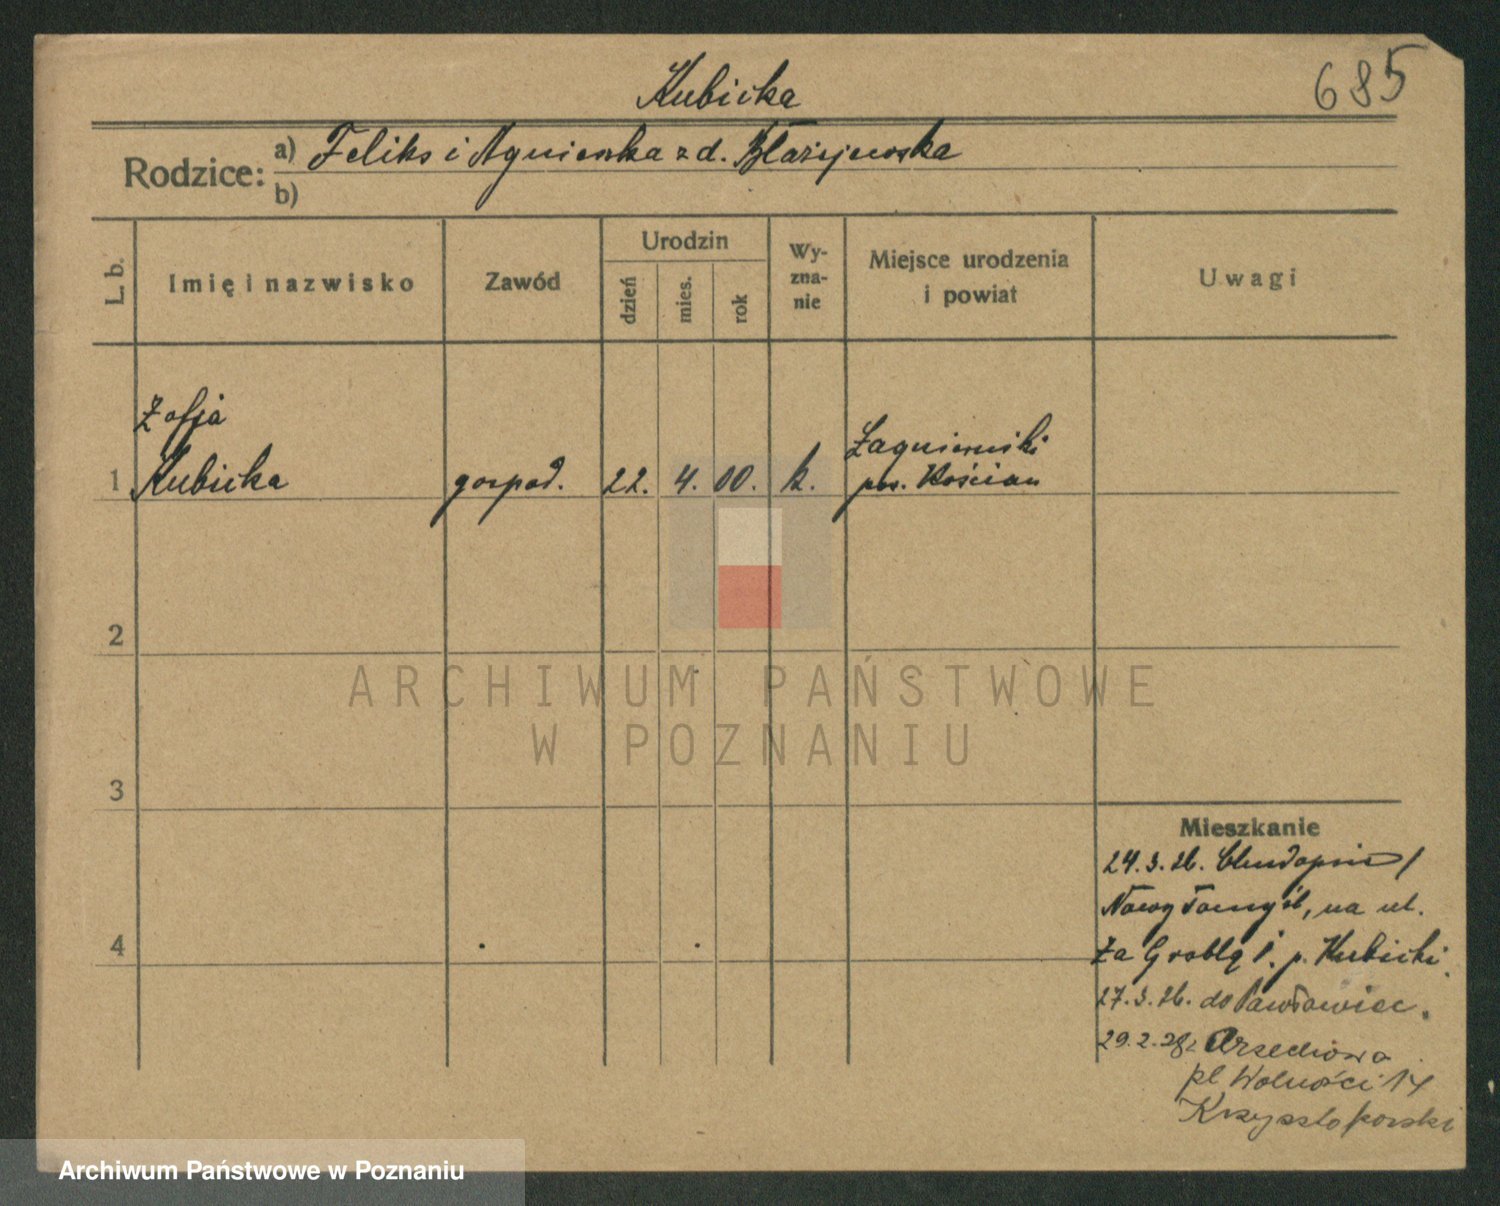 Kubicka
685
Rodzice:
a) Feliks i Agnieszka z d. Błażejewska
b)
L. b.
Imię i nazwisko
Zawód
Urodzin
dzień
mies.
rok
Wy-
zna-
nie
Miejsce urodzenia
i powiat
Uwagi
Zofja
1 Kubicka gospod. 22. 4. 00. k.
pow. Kościan
2
3
4
Mieszkanie
24.3.26.
Nowy Tomyśl, na ul.
Za Groblą 1. p. Kubicki.
27.3.26. do Pawłowic.
29.2.28 z Orzechowa
pl Wolności 14
Krzysztoforski
ARCHIWUM PAŃSTWOWE
W POZNANIU
Archiwum Państwowe w Poznaniu